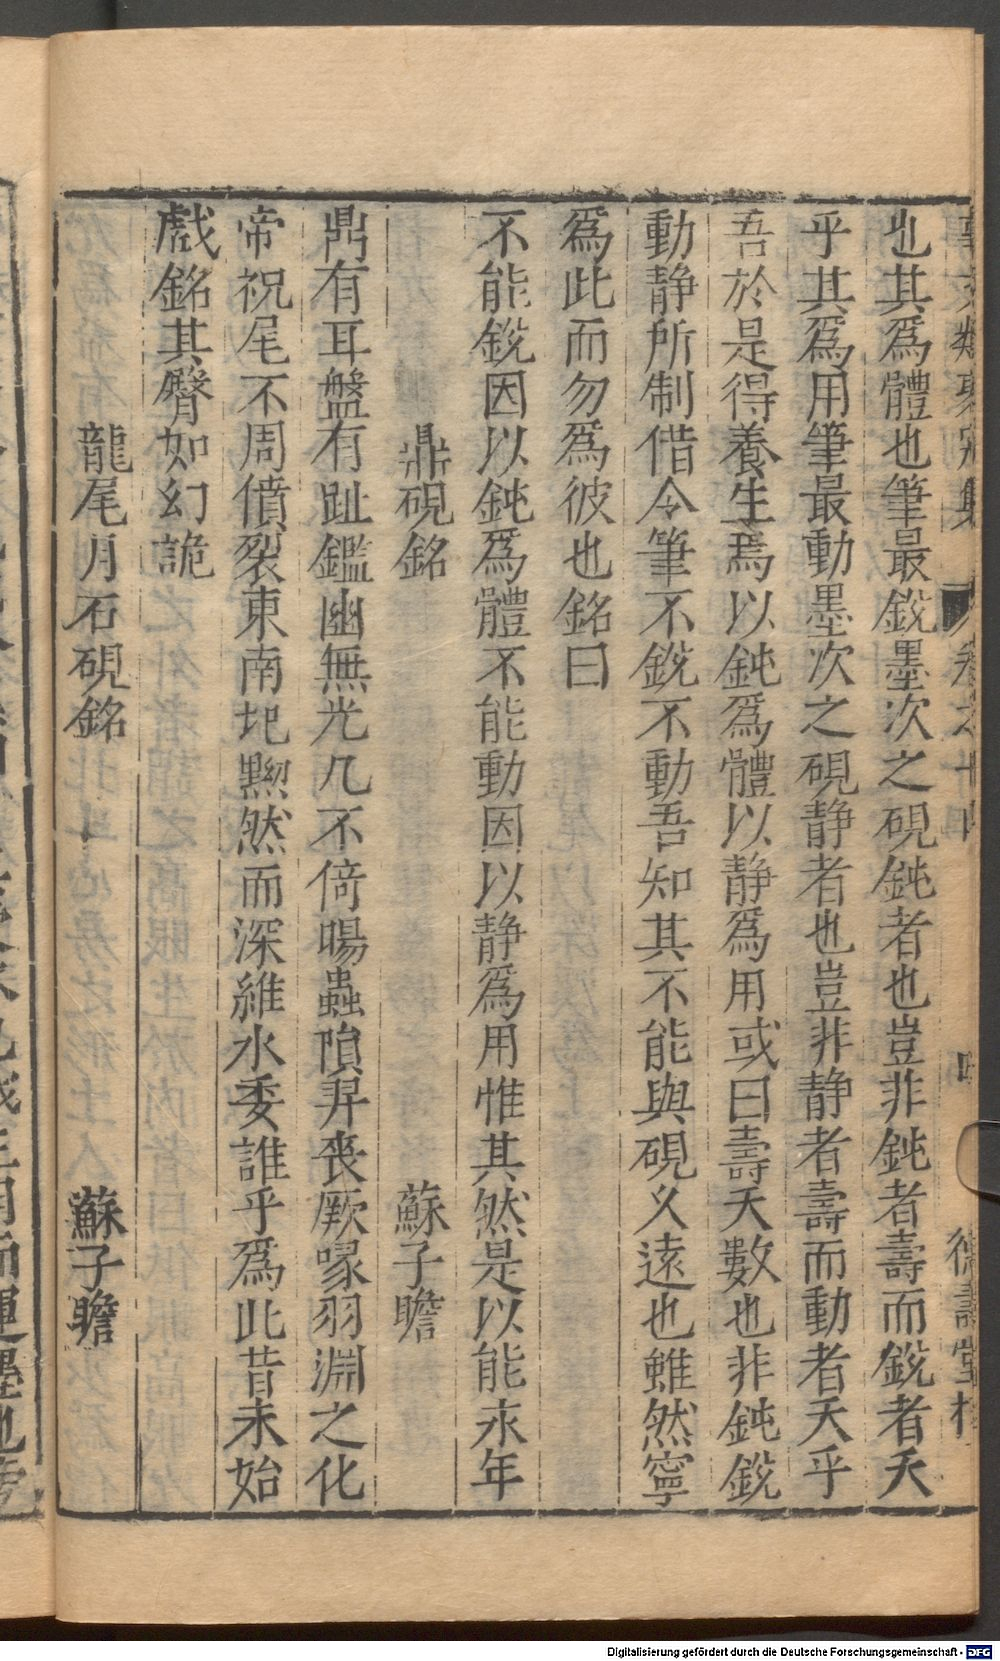 也其爲體也筆最銳墨次之硯鈍者也豈非鈍者壽而銳者夭
乎其爲用筆最動墨次之硯静者也豈非静者壽而動者夭乎
吾於是得養生焉以鈍爲體以静爲用或曰壽夭數也非鈍銳
動静所制借令筆不銳不動吾知其不能與硯乆遠也雖然寧
爲此而勿爲彼也銘曰
不能銳因以鈍爲體不能動因以静爲用惟其然是以能永年
鼎硯銘 蘇子瞻
鼎有耳盤有趾鑑幽無光几不倚暘蟲隕羿喪厥喙羽淵之化
帝祝尾不周僨裂東南圯黝然而深維水委誰乎爲此昔未始
戲銘其臂如幻詭
龍尾月石硯銘 蘇子瞻
Digitalisierung gefördert durch die Deutsche Forschungsgemeinschaft - DFG